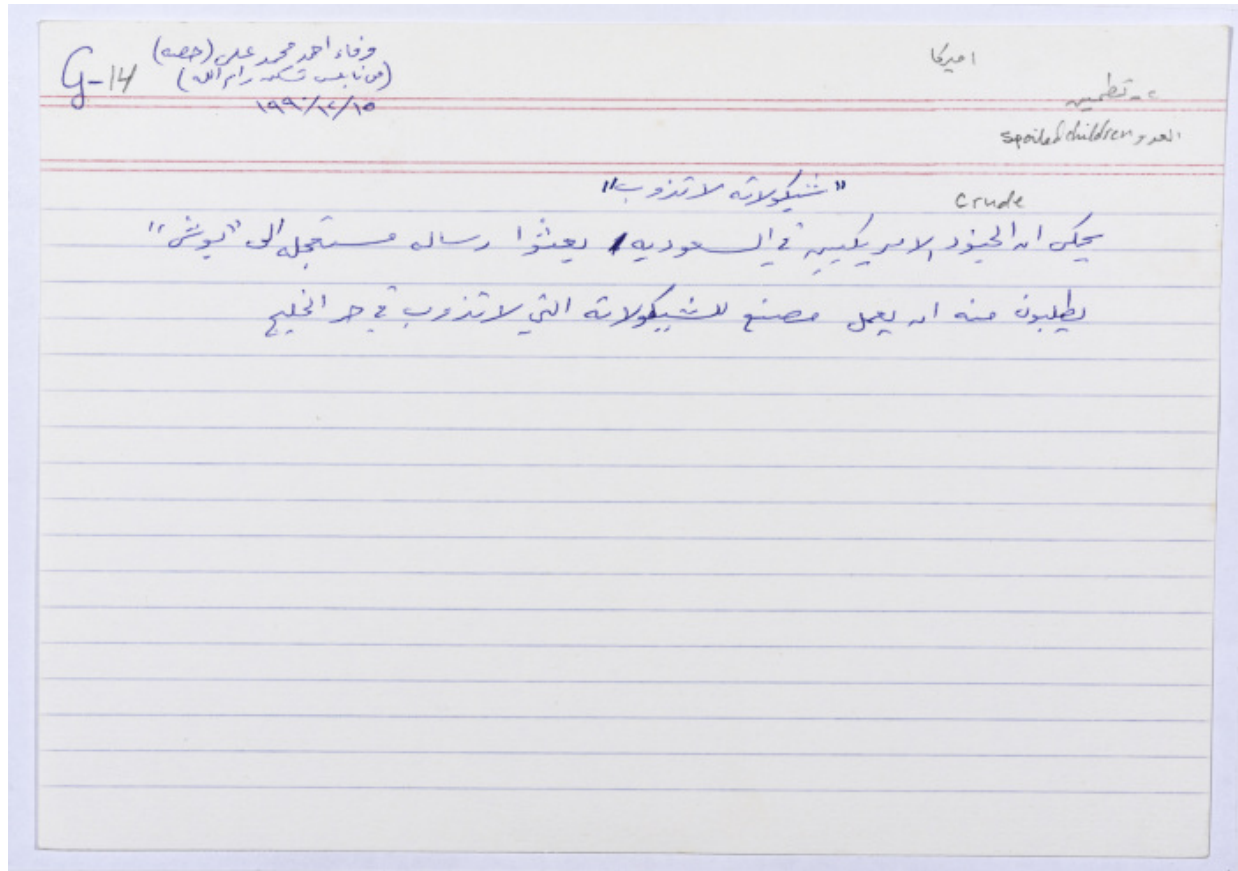 G-14
وفاء احمد محمد علي (حصه)
(من نابلس تسكن رام الله)
١٩٩٠/١٢/١٥
اميركا
تطمين
العدو spoiled children
crude
"شيكولاته لا تذوب"
يحكى ان الجنود الامريكيين في السعوديه يعثوا رساله مستعجله الى "بوش"
يطلبون منه ان يعمل مصنع للشيكولاته التي لا تذوب في حر الخليج